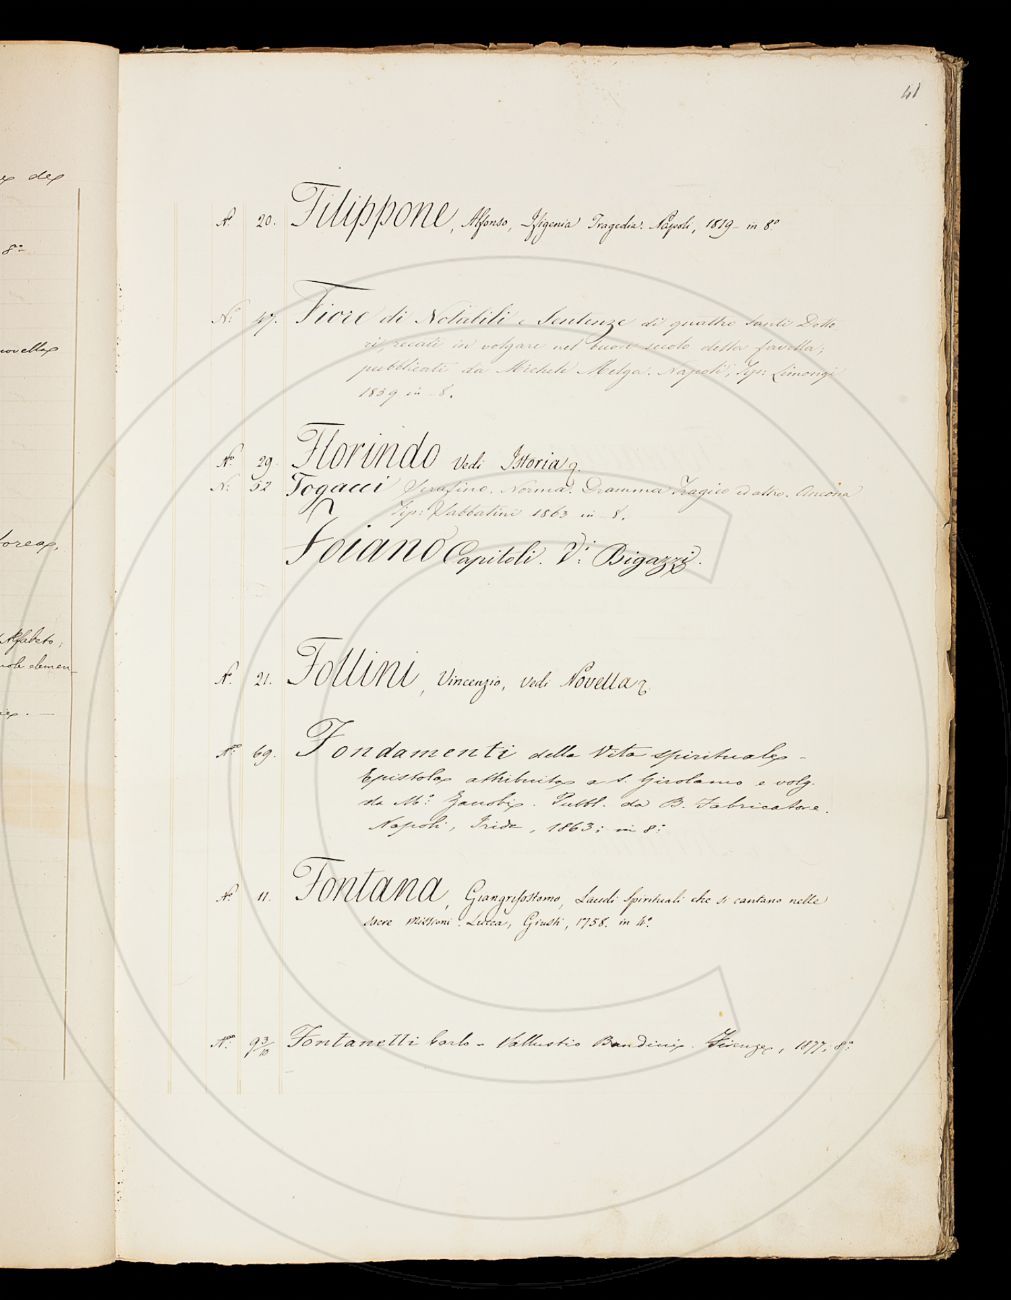 41
N.º 20. Filippone, Alfonso, Ifigenia Tragedia. Napoli, 1819 - in 8.º
N.º 47. Fiore di Notabili e Sentenze di quattro Santi Dotto
ri, recati in volgare nel buon secolo della favella,
pubblicati da Michele Melga. Napoli, Tip: Limongi
1859 in - 8.
N.º 29. Florindo Vedi Istoria
N.º 52 Fogacci Serafino. Norma. Dramma Tragico ed altro. Ancona
Tip: Sabbatini 1863 in - 8.
Foiano Capitoli. V.i Bigazzi.
N.º 21. Follini, Vincenzio, Vedi Novella
N.º 69. Fondamenti della Vita spirituale -
Epistola attribuita a S. Girolamo e volg.
da M.º Zanobi. Pubbl. da B. Fabricatore.
Napoli, Iride, 1863; in 8:
N.º 11. Fontana, Giangrisostomo, Laudi Spirituali che si cantano nelle
sacre Missioni. Lucca, Giusti, 1758. in 4.º
N.º 93/10 Fontanelli Carlo - Sallustio Bandini. Firenze, 1877; 8.º
dei
8º
novella
Alfabeto,
elemen-